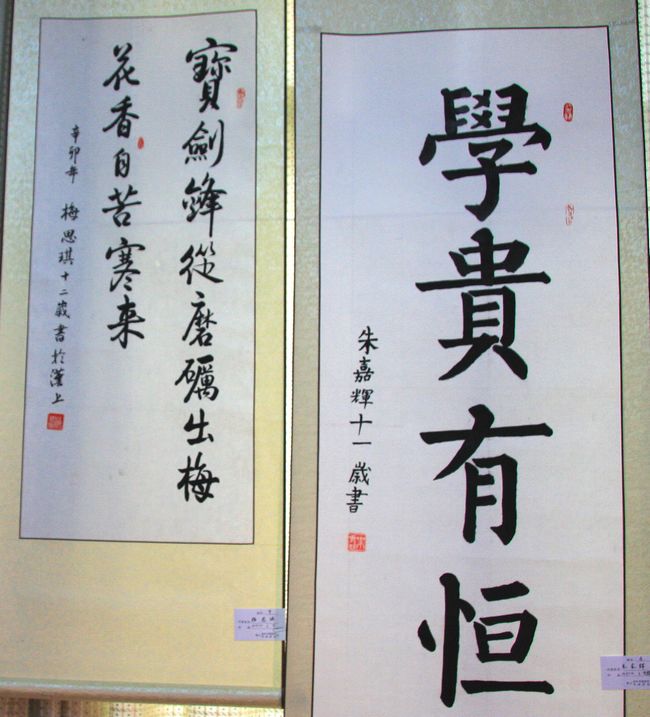 學貴有恒
朱嘉輝十一歲書
寶劍鋒從磨礪出梅
花香自苦寒来
辛卯年 梅思琪十二歲書於漢上